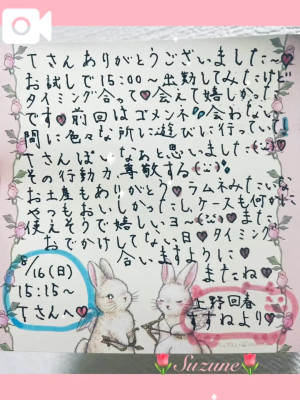 Tさんありがとうございました〜♥
お試しで15:00〜出勤してみたけど
タイミング合って♥会えて嬉しかった
です♥前回はゴメンネ 会わない
間に色々な所に遊びに行っていて
Tさんぽいなあと思いました
その行動力、尊敬する
お土産もありがとう♥ラムネみたいな
やつもおいしかったしケースも何かに
使えそうで嬉しいヨ〜 また
おでかけしてない日♥タイミング
合いますように♥
またね♥
8/16(日)
15:15〜
Tさんへ♥
上野回春
すずねより♥
Suzune